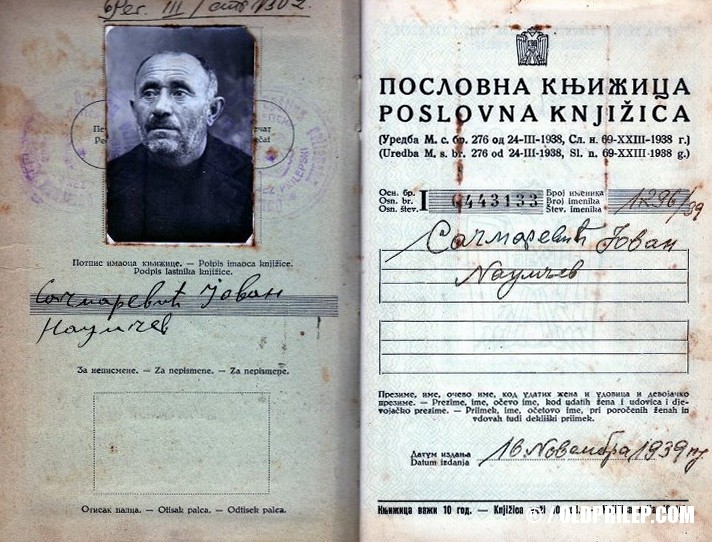 Рег. III /
Потпис имаоца књижице. — Potpis imaoca knjižice.
Podpis lastnika knjižice.
Сачмаревић Јован
Наумчев
За неписмене. — Za nepismene. — Za nepismene.
Отисак палца. — Otisak palca. — Odtisek palca.
ПОСЛОВНА КЊИЖИЦА
POSLOVNA KNJIŽICA
(Уредба М. с. бр. 276 од 24-III-1938, Сл. н. 69-XXIII-1938 г.)
(Uredba M. s. br. 276 od 24-III-1938, Sl. n. 69-XXIII-1938 g.)
Осн. бр. Број именика
Osn. br. I 0443133 Broj imenika 1296/39
Osn. štev. Štev. imenika
Сачмаревић Јован
Наумчев
Презиме, име, очево име, код удатих жена и удовица и девојачко
презиме. — Prezime, ime, očevo ime, kod udatih žena i udovica i dje-
vojačko prezime. — Priimek, ime, očetovo ime, pri poročenih ženah in
vdovah tudi dekliški priimek.
Датум издања
Datum izdanja 16 Новембра 1939
Књижица важи 10 год. — Knjižica važi 10
OLDPRILEP.COM